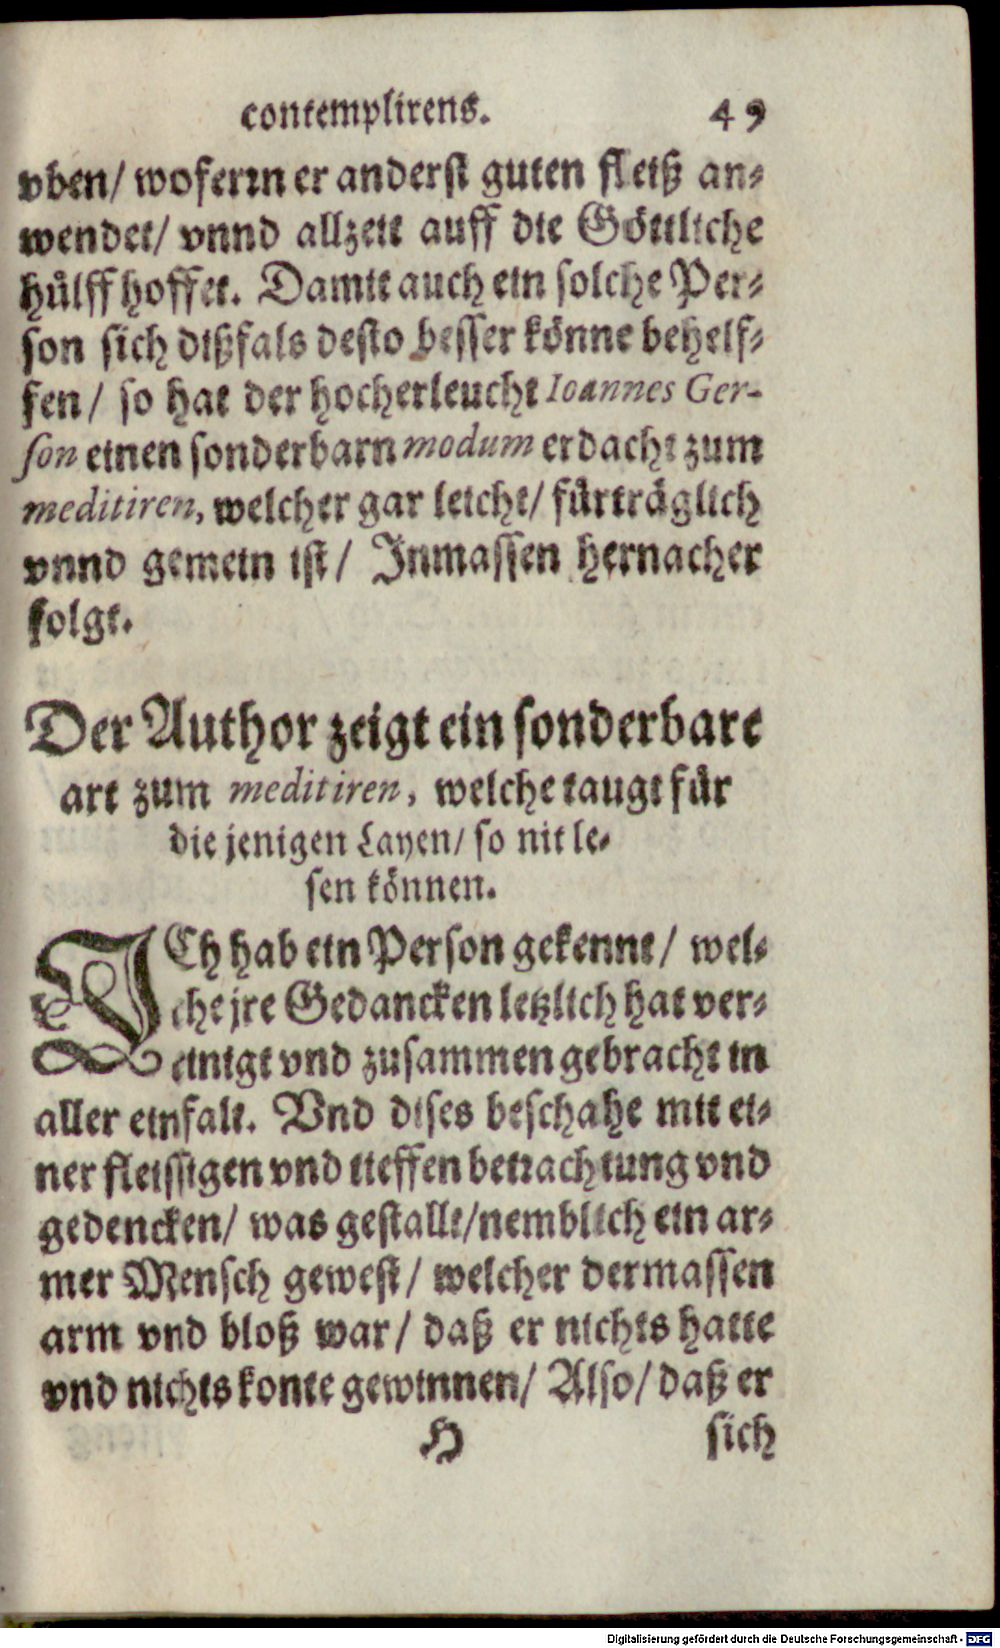 contemplirens. 49
vben/ woferrn er anderst guten fleiß an-
wendet/ vnnd allzeit auff die Göttliche
hülff hoffet. Damit auch ein solche Per-
son sich dißfals desto besser könne behelf-
fen/ so hat der hocherleucht Ioannes Ger-
son einen sonderbarn modum erdacht zum
meditiren, welcher gar leicht/ fürträglich
vnnd gemein ist/ Inmassen hernacher
folgt.
Der Author zeigt ein sonderbare
art zum meditiren, welche taugt für
die jenigen Layen/ so nit le-
sen können.
ICh hab ein Person gekennt/ wel-
che jre Gedancken letzlich hat ver-
einigt vnd zusammen gebracht in
aller einfalt. Vnd dises beschahe mit ei-
ner fleissigen vnd tieffen betrachtung vnd
gedencken/ was gestallt/ nemblich ein ar-
mer Mensch gewest/ welcher dermassen
arm vnd bloß war/ daß er nichts hatte
vnd nichts konte gewinnen/ Also/ daß er
H sich
Digitalisierung gefördert durch die Deutsche Forschungsgemeinschaft - DFG